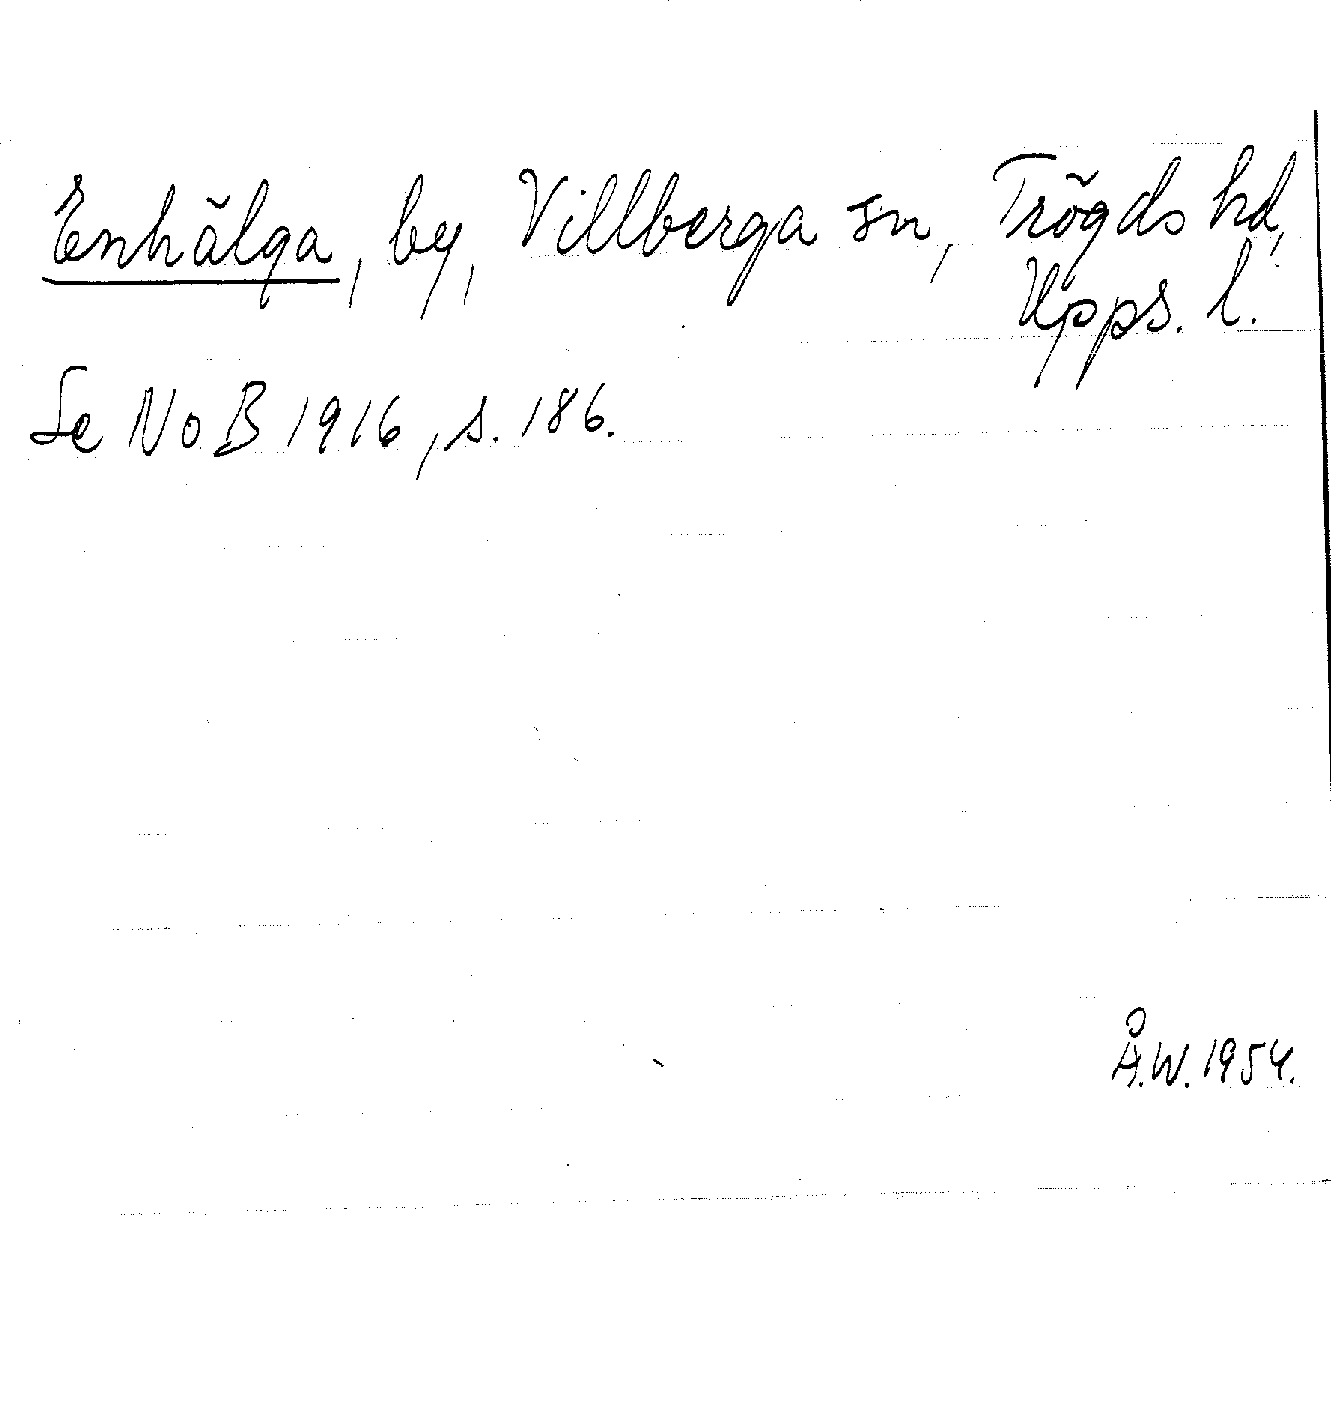 Enhälga, by, Villberga sn, Trögds hd,
Upps. l.
Se NoB 1916, s. 186.
Å.W. 1954.